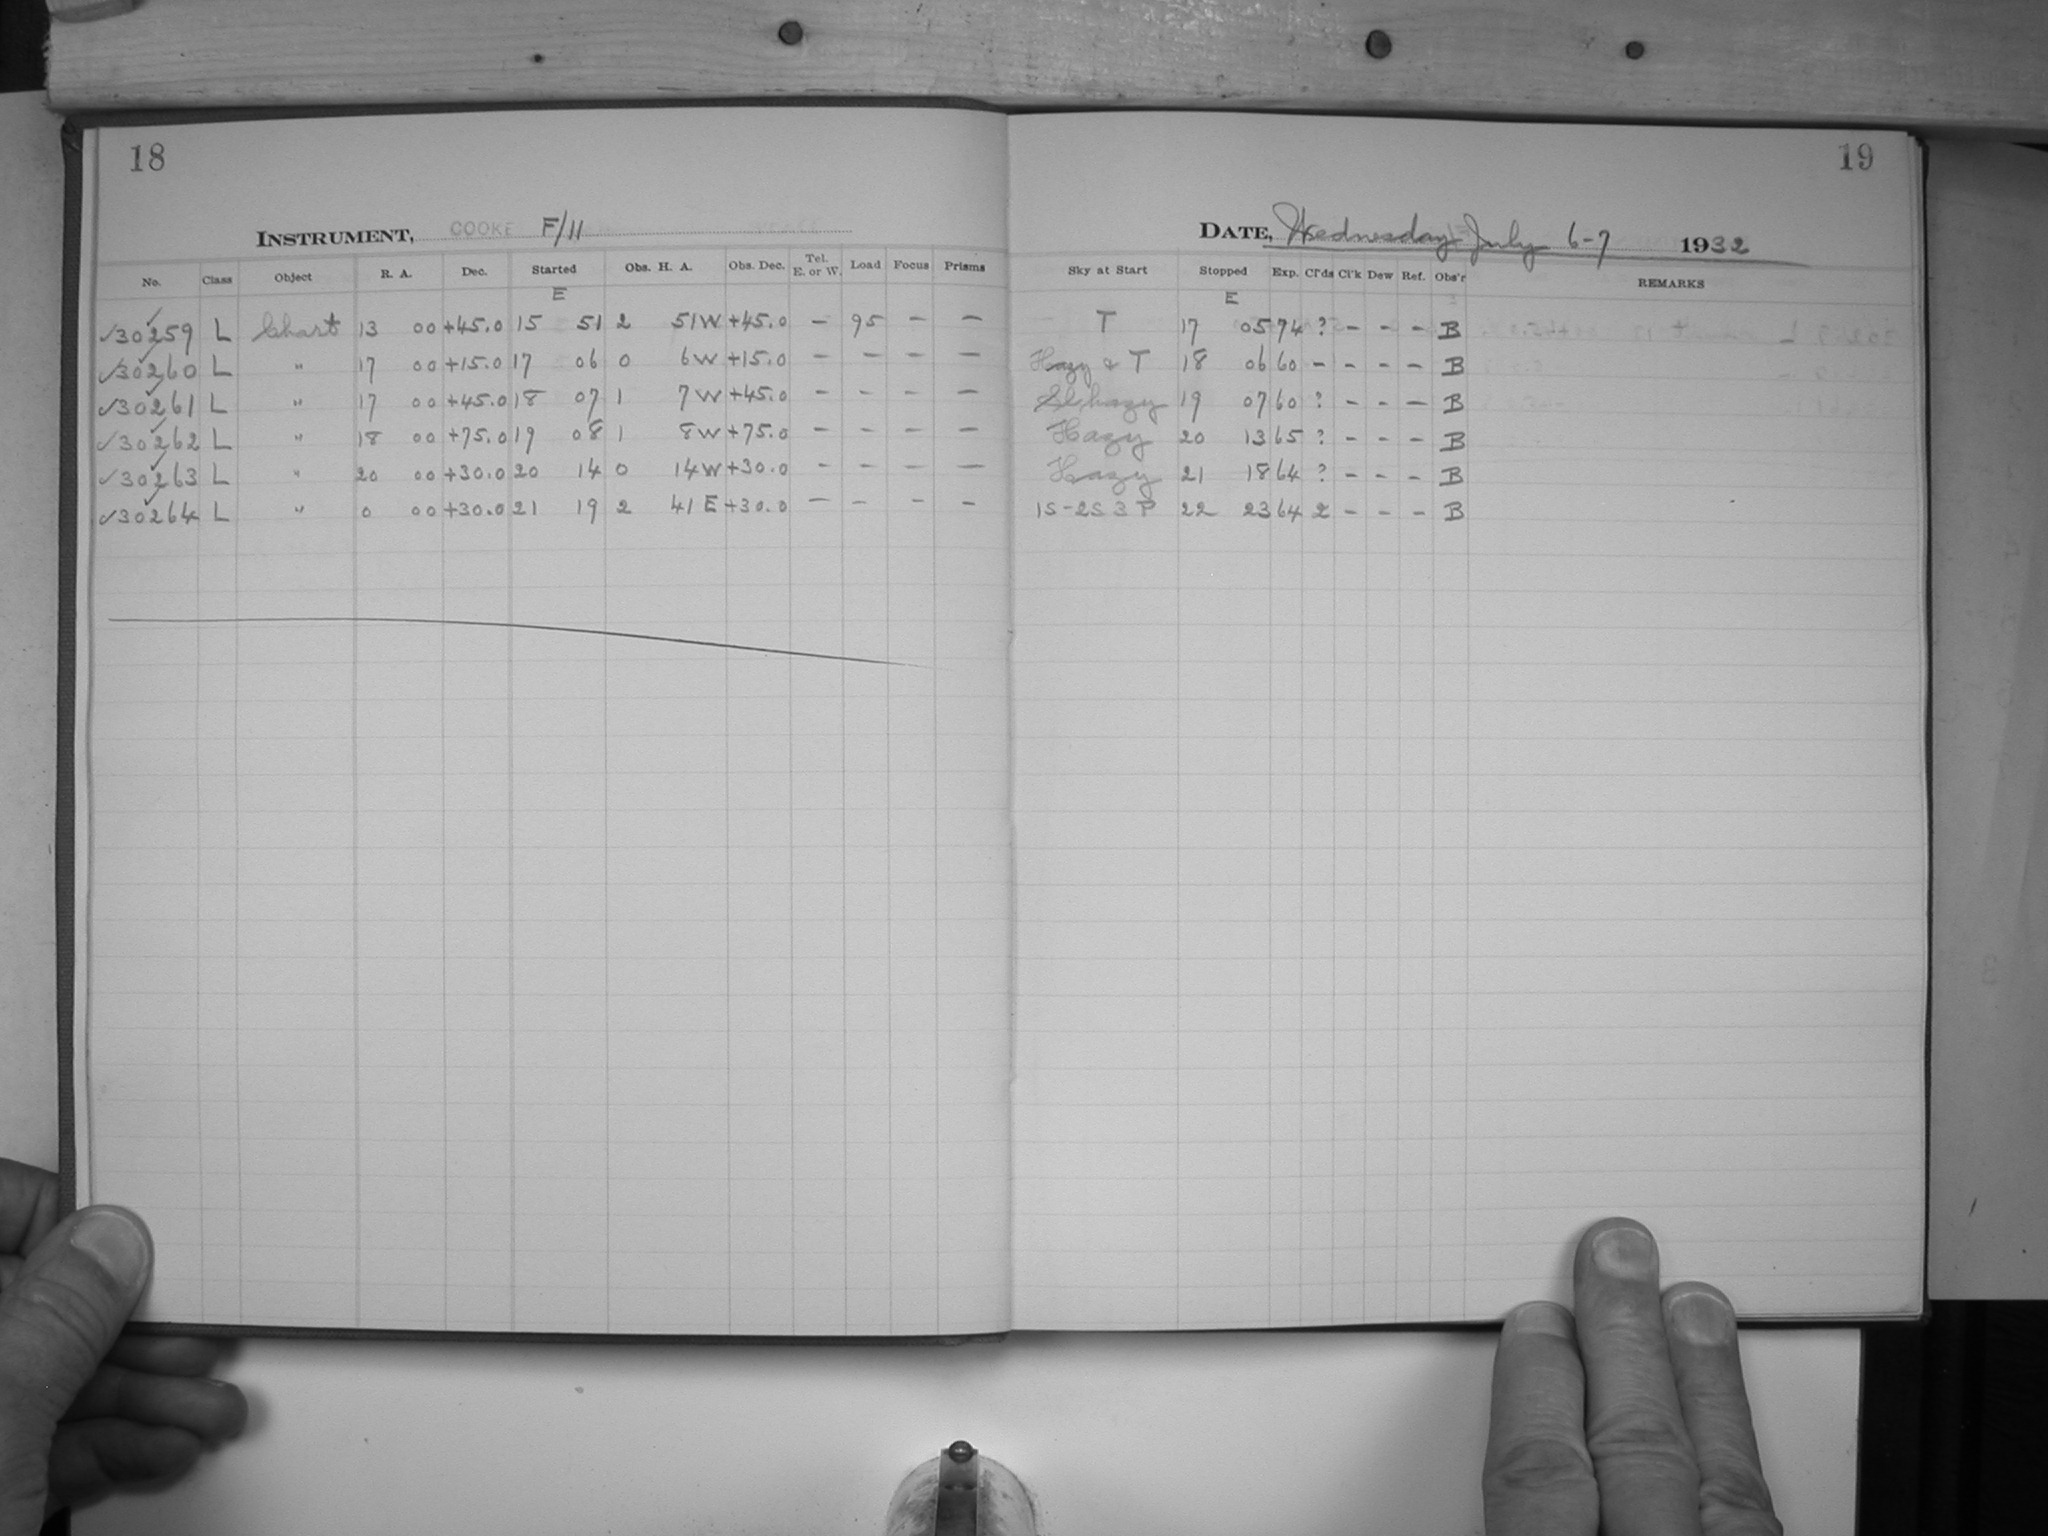 18
INSTRUMENT, COOKE F/11
No. Class Object R. A. Dec. Started Obs. H. A. Obs. Dec. Tel. E. or W. Load Focus Prisms
E
✓30259 L Chart 13 00 +45.0 15 51 2 51W +45.0 – 95 – –
✓30260 L " 17 00 +15.0 17 06 0 6W +15.0 – – – –
✓30261 L " 17 00 +45.0 18 07 1 7W +45.0 – – – –
✓30262 L " 18 00 +75.0 19 08 1 8W +75.0 – – – –
✓30263 L " 20 00 +30.0 20 14 0 14W +30.0 – – – –
✓30264 L " 0 00 +30.0 21 19 2 41E +30.0 – – – –
19
DATE, Wednesday July 6-7 1932
Sky at Start Stopped Exp. Cl'ds Cl'k Dew Ref. Obs'r REMARKS
E
T 17 05 74 ? – – – B
Hazy & T 18 06 60 – – – – B
Sl. hazy 19 07 60 ? – – – B
Hazy 20 13 65 ? – – – B
Hazy 21 18 64 ? – – – B
1S-2S 3 P 22 23 64 2 – – – B